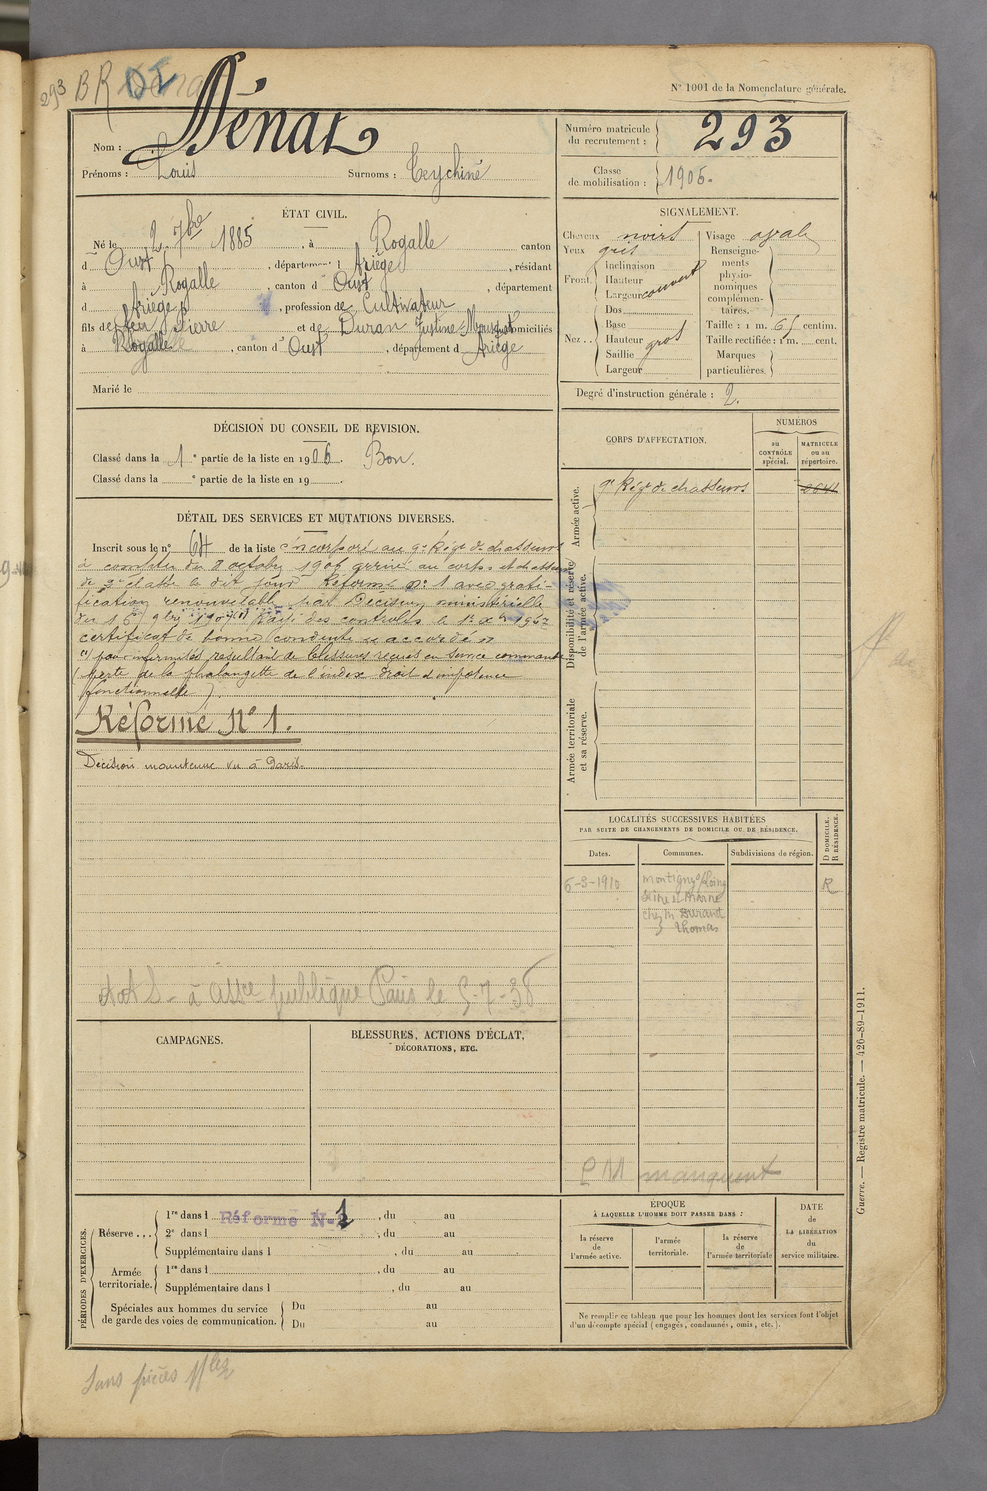 293 BR
N° 1001 de la Nomenclature générale.
Nom : Dénat
Prénoms : Louis Surnoms : Teychiné
Numéro matricule du recrutement : 293
Classe de mobilisation : 1905.
ÉTAT CIVIL.
Né le 2 7bre 1885, à Rogalle canton
d Oust, département d Ariège, résidant
à Rogalle, canton d Oust, département
d Ariège, profession de Cultivateur
fils de feu Pierre et de Duran Justine domiciliés
à Rogalle, canton d Oust, département d Ariège
Marié le
SIGNALEMENT.
Cheveux noirs
Yeux gris
Front. Inclinaison
Hauteur
Largeur couvert
Nez... Dos
Base
Hauteur gros
Saillie
Largeur
Visage ovale
Renseignements physionomiques complémentaires.
Taille : 1 m. 65 centim.
Taille rectifiée : 1 m. cent.
Marques particulières.
Degré d'instruction générale : 2.
DÉCISION DU CONSEIL DE REVISION.
Classé dans la 1e partie de la liste en 1906. Bon.
Classé dans la e partie de la liste en 19 .
DÉTAIL DES SERVICES ET MUTATIONS DIVERSES.
Inscrit sous le n° 64 de la liste Incorporé au 9e Régt de chasseurs
à compter du 8 octobre 1906 arrivé au corps et chasseur
de 2e classe le dit jour Réformé n° 1 avec grati-
fication renouvelable par Décision ministérielle
du 16 9bre 1907 (1) Rayé des contrôles le 1er Xbre 1907
certificat de bonne conduite "accordé"
(1) pour infirmités résultant de blessures reçues en service commandé
(perte de la phalangette de l'index droit impotence
fonctionnelle).
Réforme N° 1.
Décision maintenue vu à Paris.
à Assce publique Paris le 5-7-38
CORPS D'AFFECTATION.
NUMÉROS
au CONTRÔLE spécial.
MATRICULE ou au répertoire.
Armée active.
9e Régt de chasseurs
Disponibilité et réserve de l'armée active.
Armée territoriale et sa réserve.
LOCALITÉS SUCCESSIVES HABITÉES
PAR SUITE DE CHANGEMENTS DE DOMICILE OU DE RÉSIDENCE.
Dates. Communes. Subdivisions de région. D DOMICILE. R RÉSIDENCE.
6-3-1910 Montigny s/Loing R
Seine et Marne
chez M Durand
Thomas
manquent
CAMPAGNES.
BLESSURES, ACTIONS D'ÉCLAT,
DÉCORATIONS, ETC.
PÉRIODES D'EXERCICES.
Réserve... 1re dans l Réformé N° 1, du au
2e dans l , du au
Supplémentaire dans l , du au
Armée territoriale. 1re dans l , du au
Supplémentaire dans l , du au
Spéciales aux hommes du service de garde des voies de communication. Du au
Du au
ÉPOQUE
À LAQUELLE L'HOMME DOIT PASSER DANS :
la réserve de l'armée active.
l'armée territoriale.
la réserve de l'armée territoriale
DATE de LA LIBÉRATION du service militaire.
Ne remplir ce tableau que pour les hommes dont les services font l'objet
d'un décompte spécial (engagés, condamnés, omis, etc.).
Guerre. — Registre matricule. — 426-89-1911.
Sans pièces